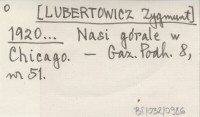 0 [LUBERTOWICZ Zygmunt]
1920... Nasi górale w
Chicago. — Gaz. Podh. 8,
nr 51.